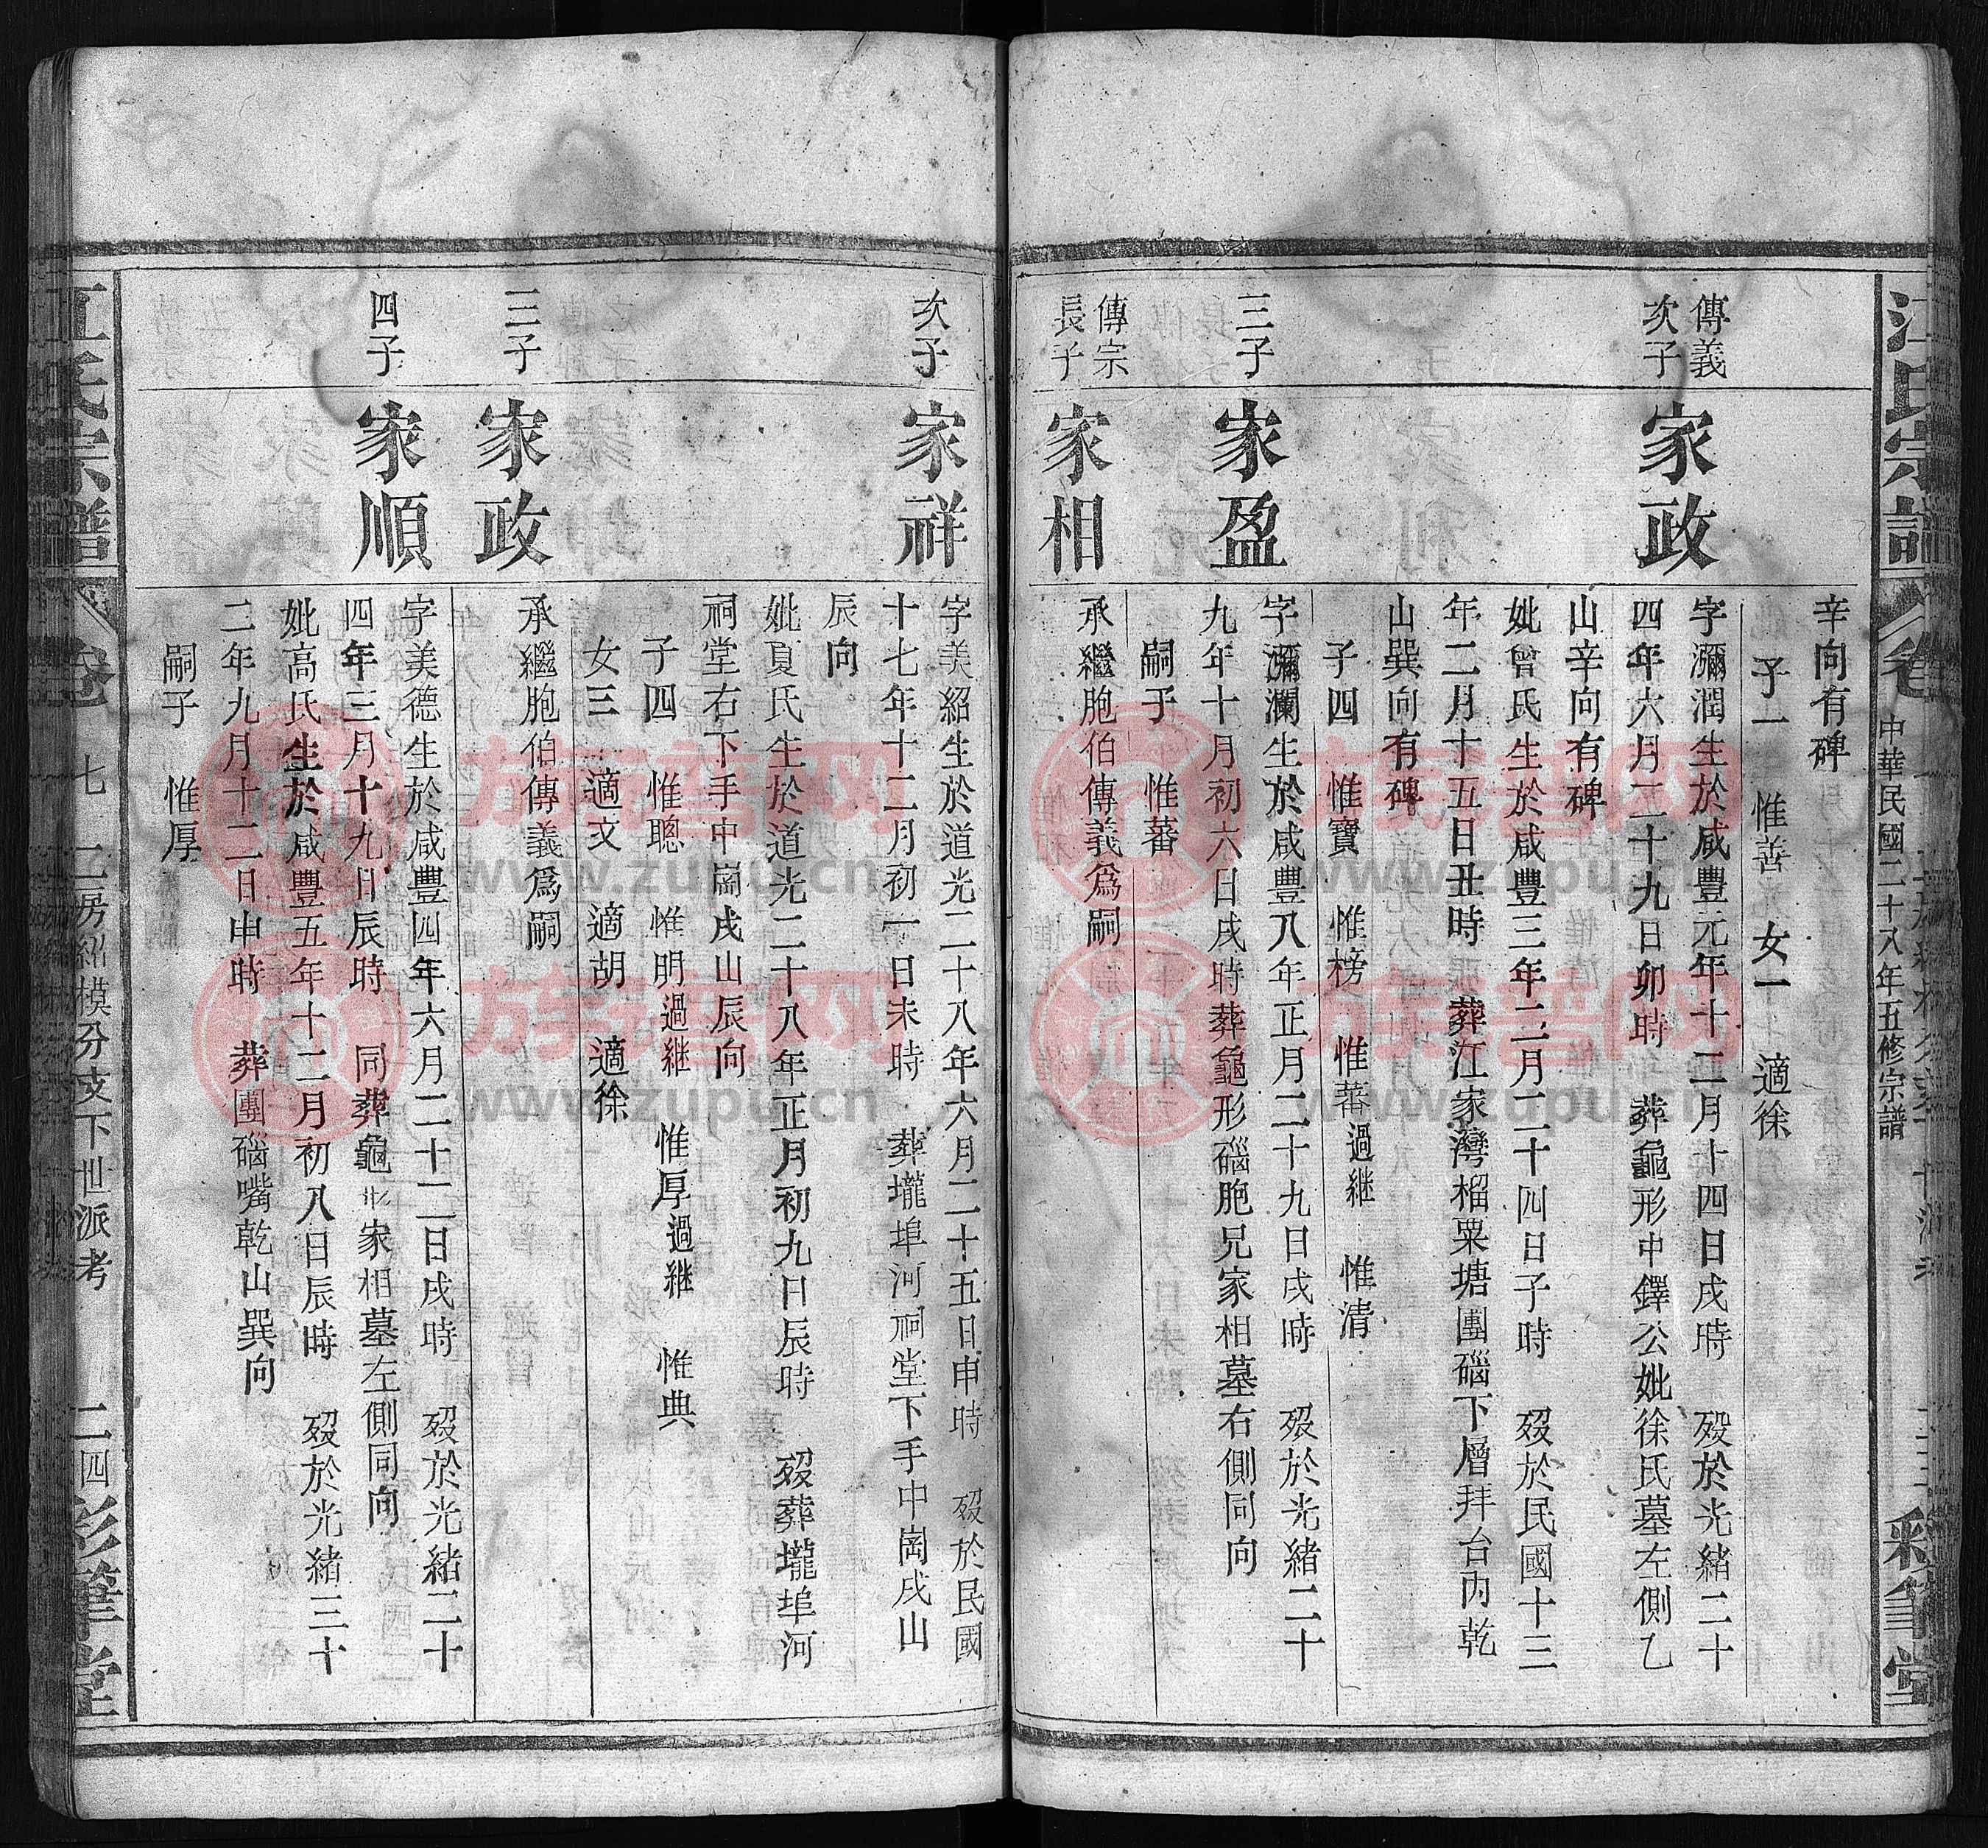 江氏宗譜
卷
中華民國二十八年五修宗譜
彩筆堂
辛向有碑
子一　惟善　女一　適徐
傳義
次子
家政
字瀰潤生於咸豐元年十二月十四日戌時　歿於光緒二十
四年六月二十九日卯時　葬龜形中鐸公妣徐氏墓左側乙
山辛向有碑
妣曾氏生於咸豐三年二月二十四日子時　歿於民國十三
年二月十五日丑時　葬江家灣榴粟塘團磘下層拜台內乾
山巽向有碑
子四　惟寶　惟榜　惟蕃過継　惟清
三子
家盈
字瀰瀾生於咸豐八年正月二十九日戌時　歿於光緒二十
九年十月初六日戌時葬龜形磘胞兄家相墓右側同向
嗣子　惟蕃
傳宗
長子
家相
承繼胞伯傳義爲嗣
次子
家祥
字美紹生於道光二十八年六月二十五日申時　歿於民國
十七年十二月初一日未時　葬壠埠河祠堂下手中崗戌山
辰向
妣夏氏生於道光二十八年正月初九日辰時　歿葬壠埠河
祠堂右下手中崗戌山辰向
子四　惟聰　惟明過継　惟厚過継　惟典
女三　適文　適胡　適徐
三子
家政
承繼胞伯傳義爲嗣
四子
家順
字美德生於咸豐四年六月二十二日戌時　歿於光緒二十
四年三月十九日辰時　同葬龜形家相墓左側同向
妣高氏生於咸豐五年十二月初八日辰時　歿於光緒三十
二年九月十二日申時　葬團磘嘴乾山巽向
嗣子　惟厚
江氏宗譜
卷七　二房紹模分支下世派考　二四
彩筆堂
族譜网
www.zupu.cn
族譜网
www.zupu.cn
族譜网
www.zupu.cn
族譜网
www.zupu.cn